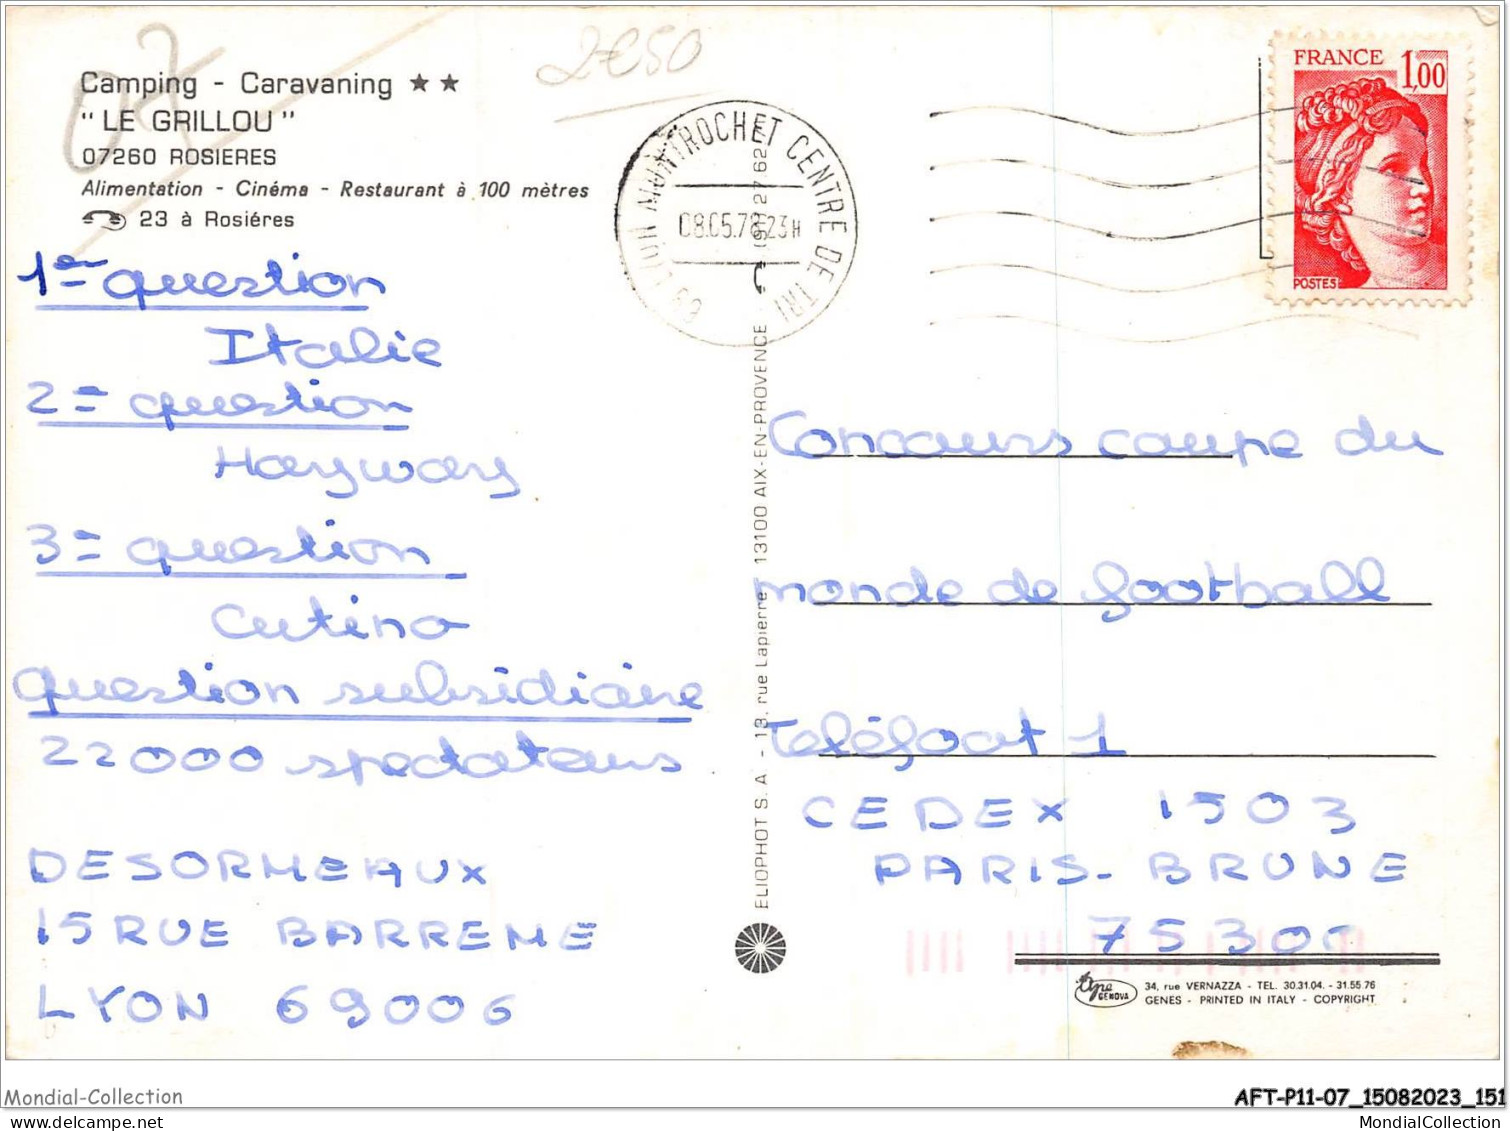 07
2€50
Camping - Caravaning ★★
"LE GRILLOU"
07260 ROSIERES
Alimentation - Cinéma - Restaurant à 100 mètres
23 à Rosiéres
1er question
Italie
2= question
Hayway
3= question
Cutino
question subsidiaire
22000 spectateurs
DESORMEAUX
15 RUE BARREME
LYON 69006
69 LYON MONTROCHET CENTRE DE TRI
08.05.78 23H
FRANCE 1,00
POSTES
ELIOPHOT S.A - 13, rue Lapierre 13100 AIX-EN-PROVENCE
Concours coupe du
monde de football
Teléfoot 1
CEDEX 1503
PARIS-BRUNE
75300
type
GENOVA
34, rue VERNAZZA - TEL. 30.31.04. - 31.55 76
GENES - PRINTED IN ITALY - COPYRIGHT
Mondial-Collection
AFT-P11-07_15082023_151
MondialCollection.com
MondialCollection.com